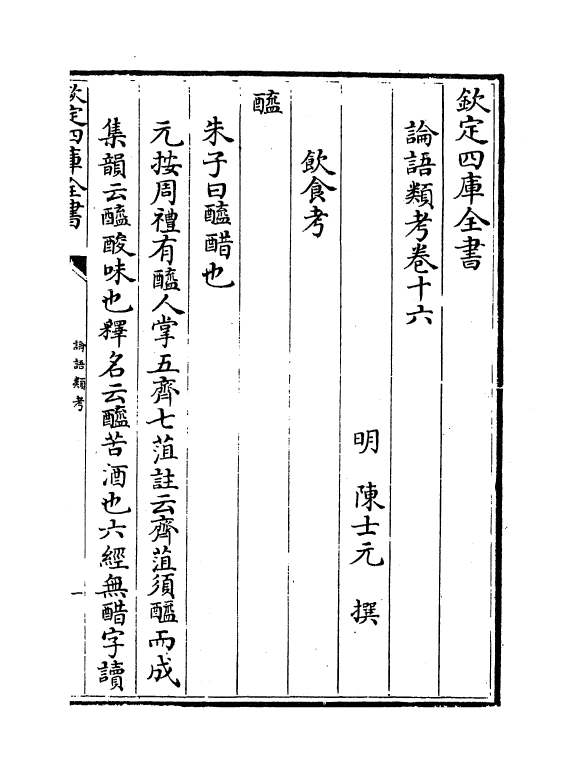 欽定四庫全書
論語類考卷十六
明 陳士元 撰
飲食考
醯
朱子曰醯醋也
元按周禮有醯人掌五齊七菹註云齊菹須醯而成
集韻云醯酸味也釋名云醯苦酒也六經無醋字讀
欽定四庫全書
論語類考
一